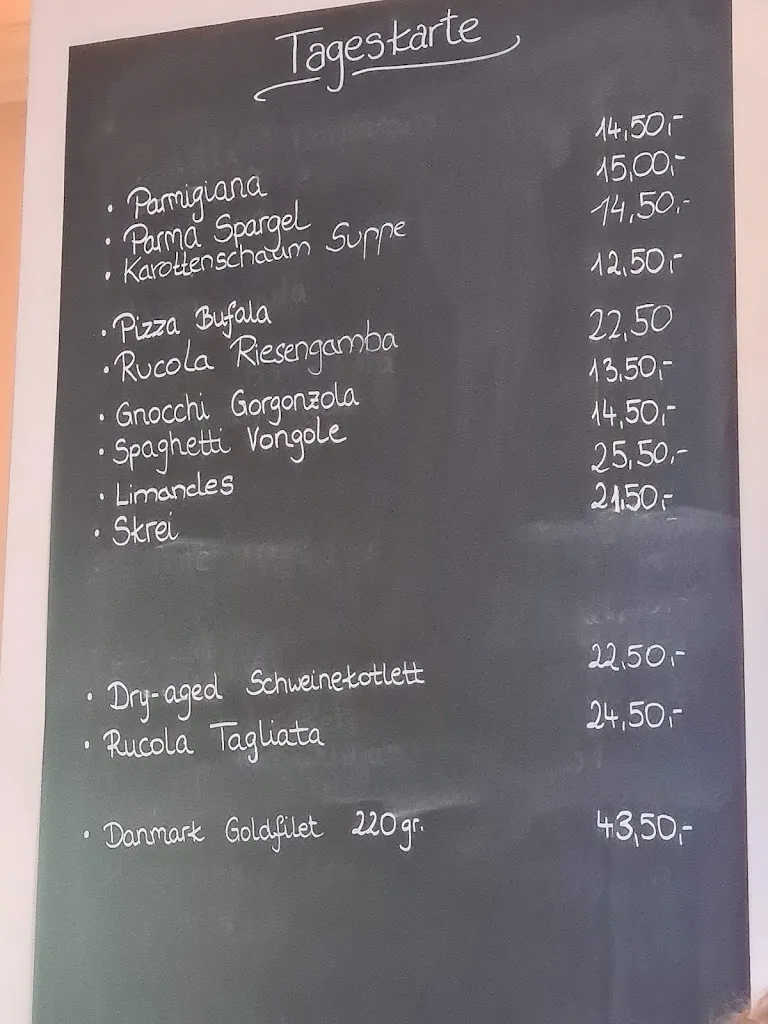 Tageskarte
• Parmigiana 14,50,-
• Parma Spargel 15,00,-
• Karottenschaum Suppe 14,50,-
• Pizza Bufala 12,50,-
• Rucola Riesengamba 22,50
• Gnocchi Gorgonzola 13,50,-
• Spaghetti Vongole 14,50,-
• Limandes 25,50,-
• Skrei 21,50,-
• Dry-aged Schweinekotlett 22,50,-
• Rucola Tagliata 24,50,-
• Danmark Goldfilet 220gr. 43,50,-